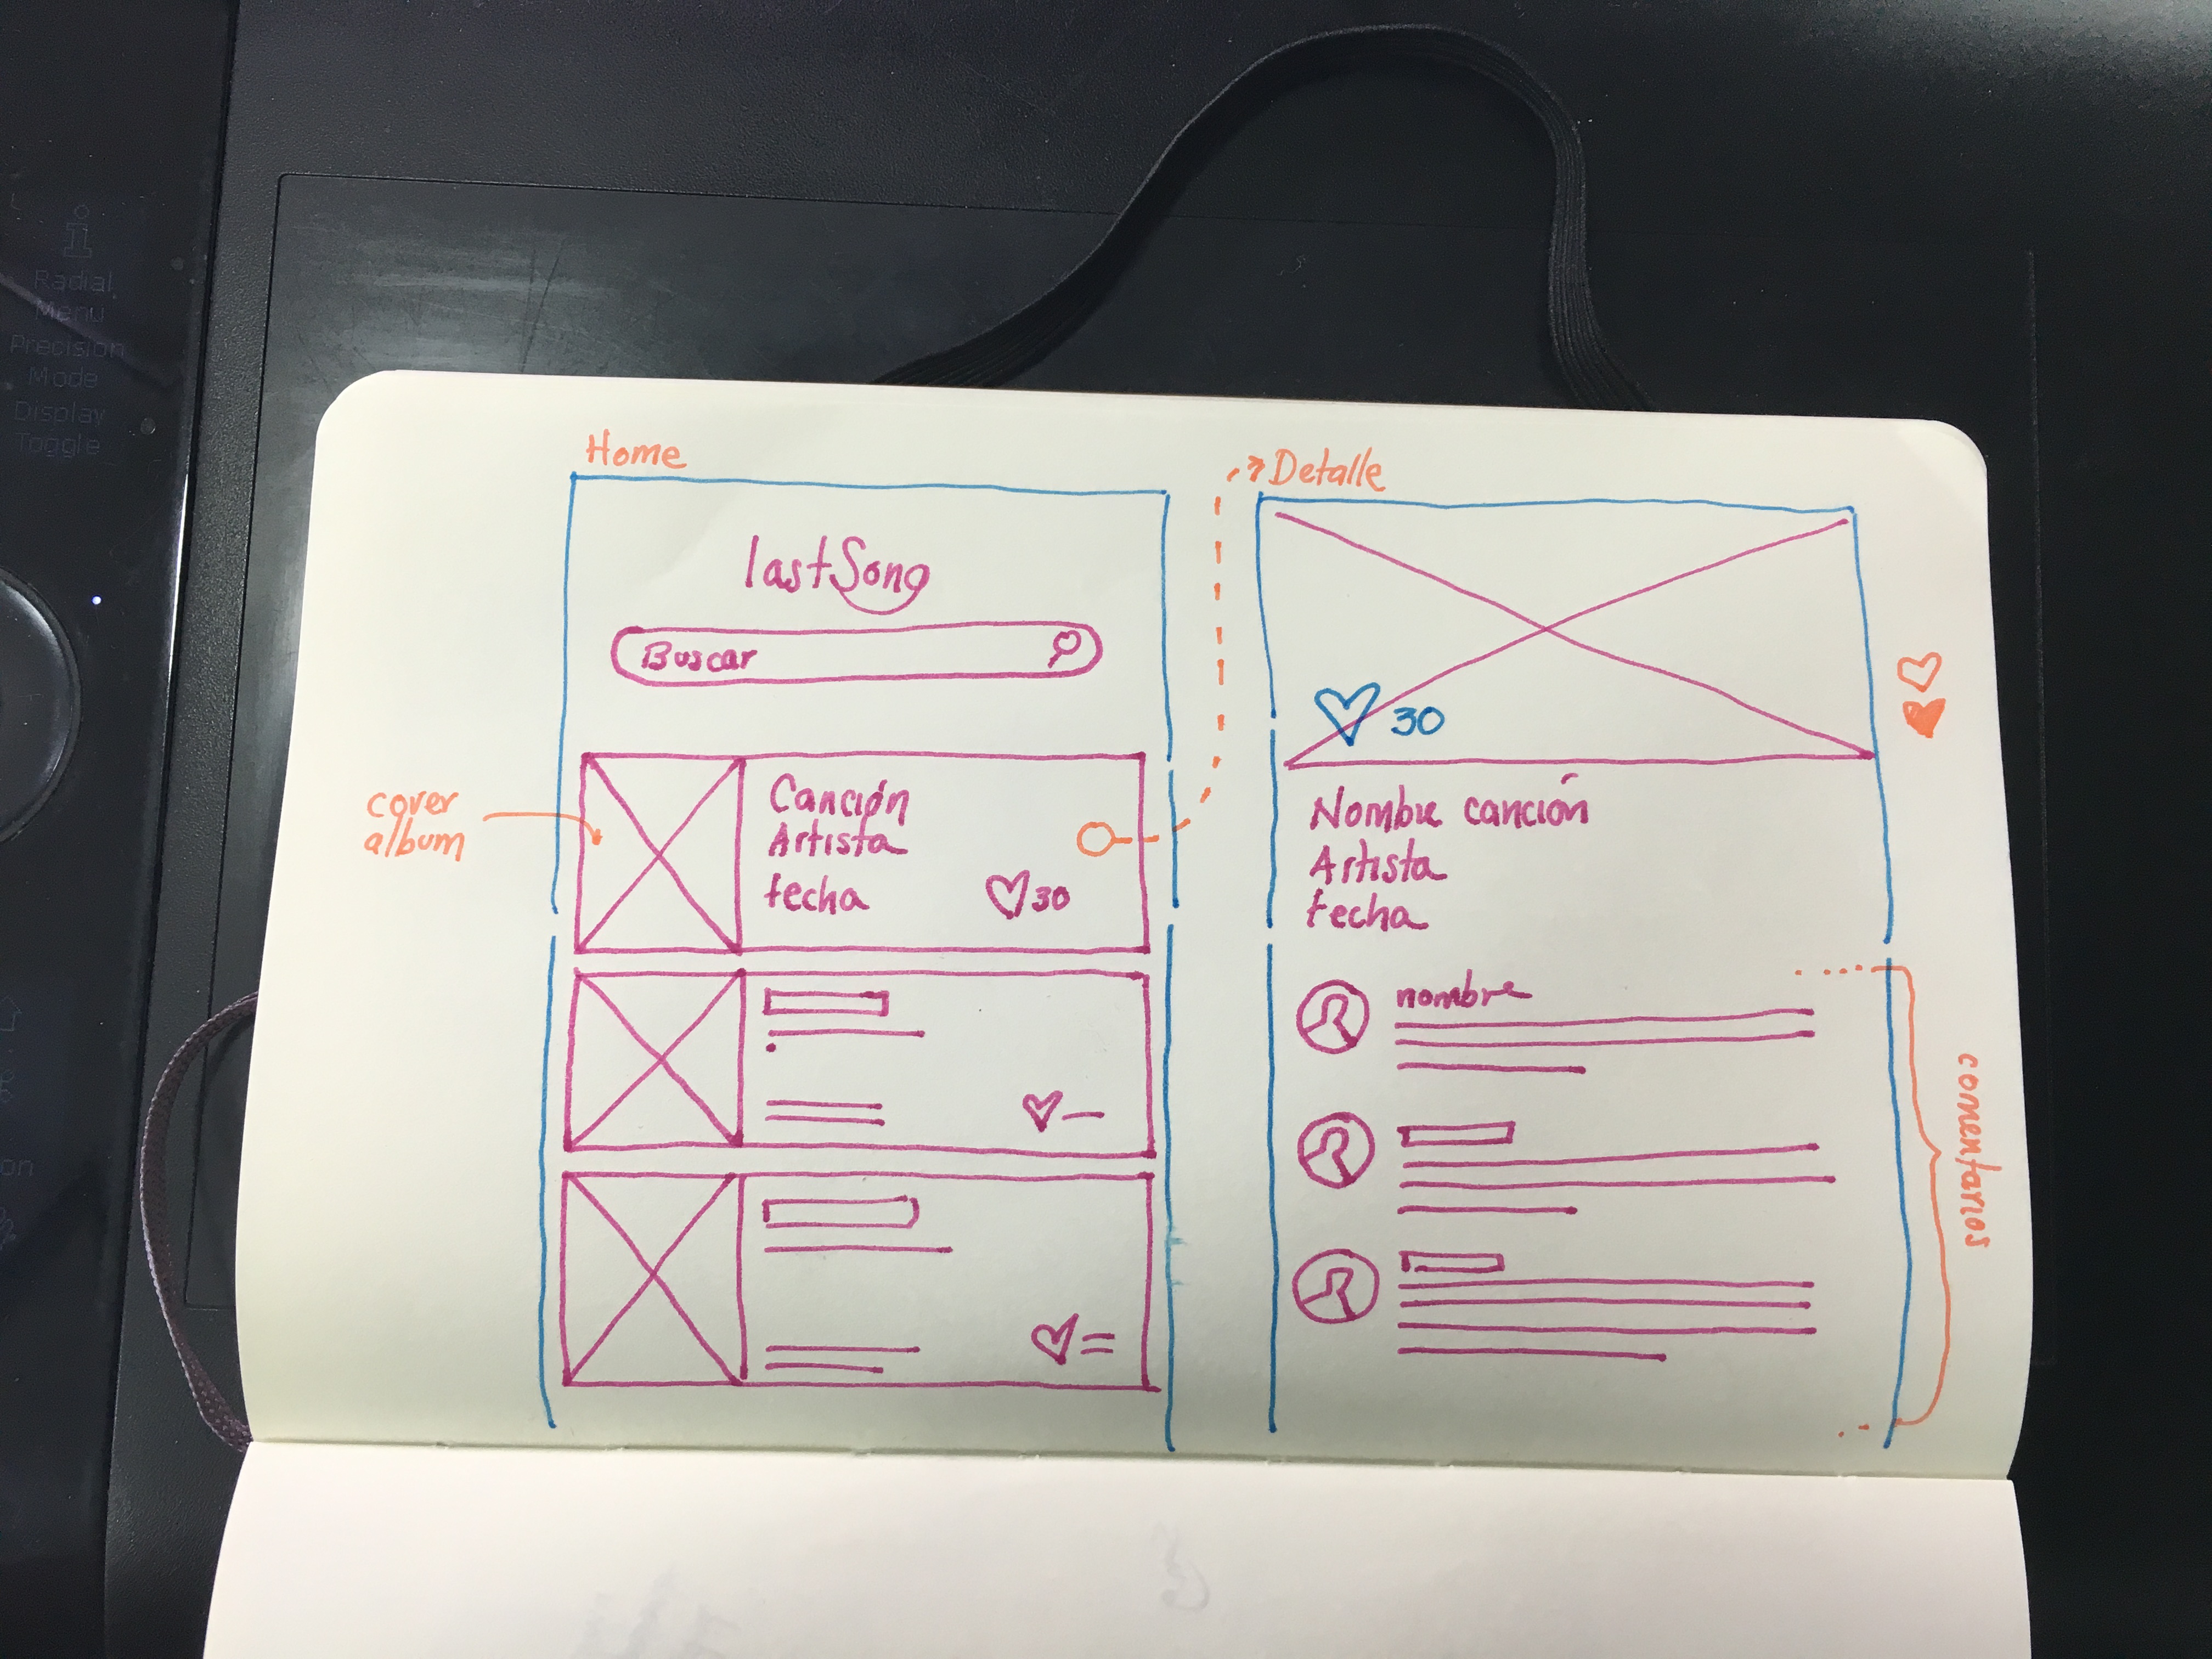 Radial
Menu
Precision
Mode
Display
Toggle
on
Home
lastSong
Buscar
cover
album
Canción
Artista
fecha
30
Detalle
30
Nombre canción
Artista
fecha
nombre
comentarios